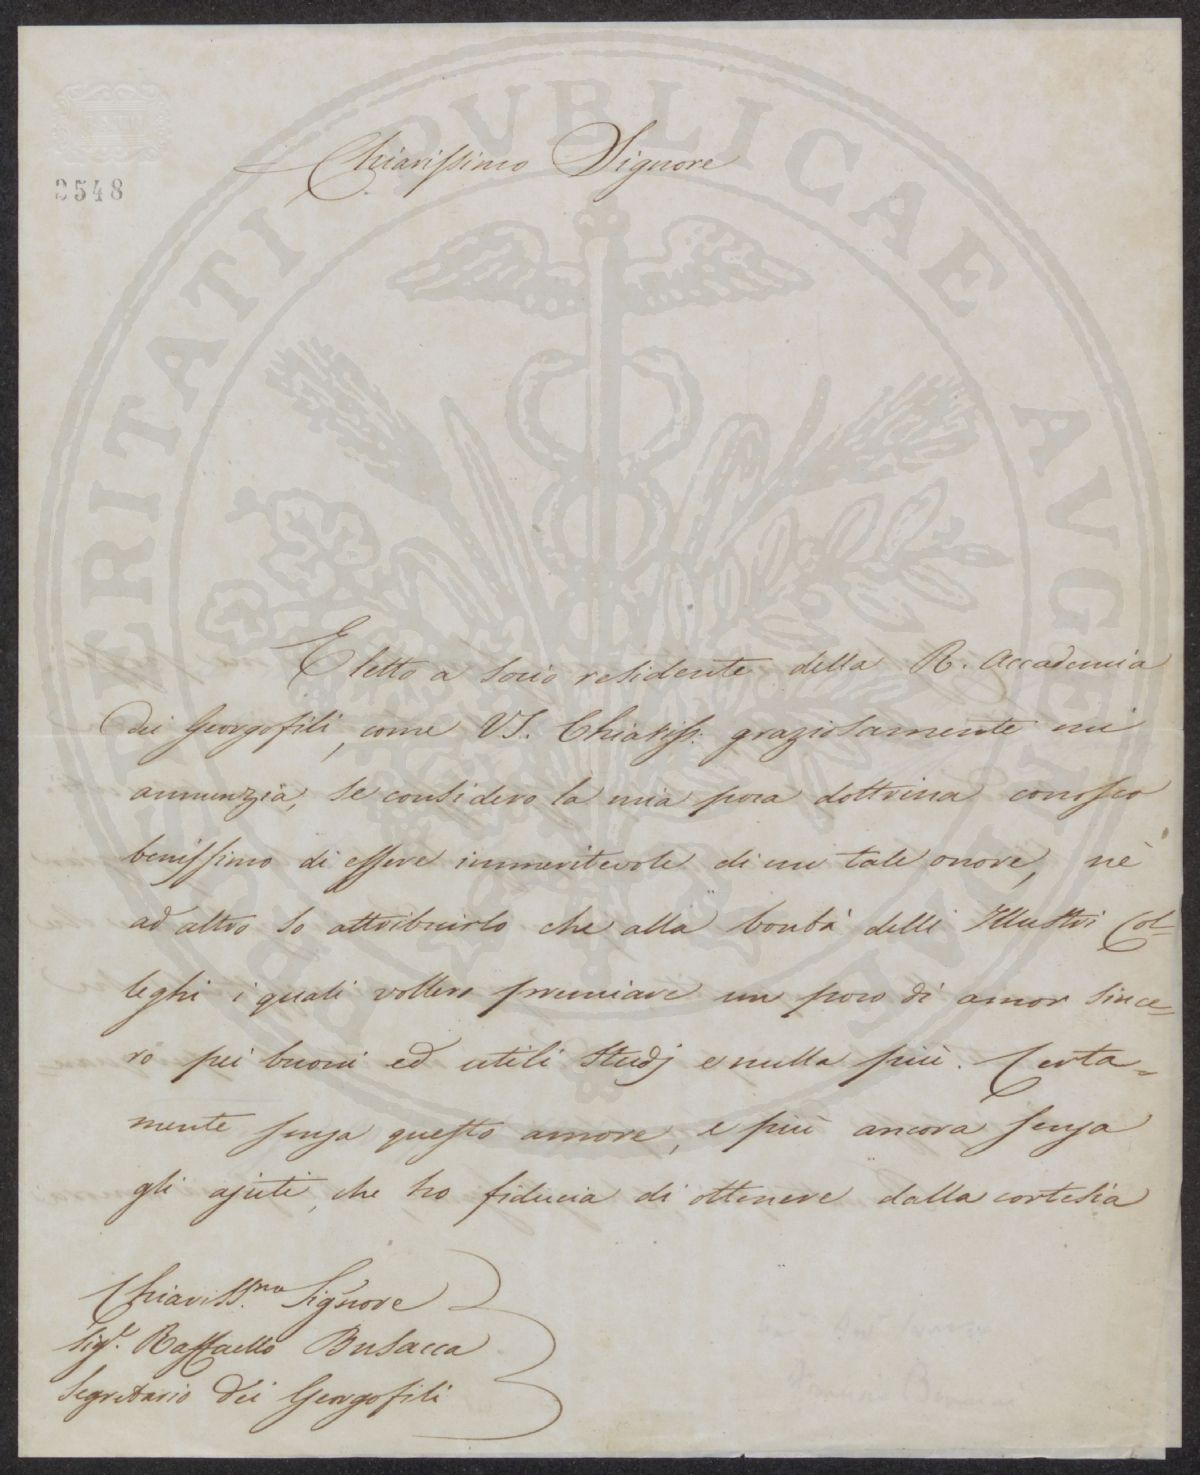 PROSPERITATI PVBLICAE AVGENDAE
3548
Chiarissimo Signore
Eletto a socio residente della R. Accademia
dei Georgofili, come VS. Chiariss: graziosamente mi
annunzia, se considero la mia poca dottrina conosco
benissimo di essere immeritevole di un tale onore, nè
ad altro so attribuirlo che alla bontà delli Illustri Col=
leghi i quali vollero premiare un poco di amor since=
ro pei buoni ed utili studj e nulla più. Certa=
mente senza questo amore, e più ancora senza
gli ajuti, che ho fiducia di ottenere dalla cortesia
Chiariss.mo Signore
Sig.r Raffaello Busacca
Segretario dei Georgofili